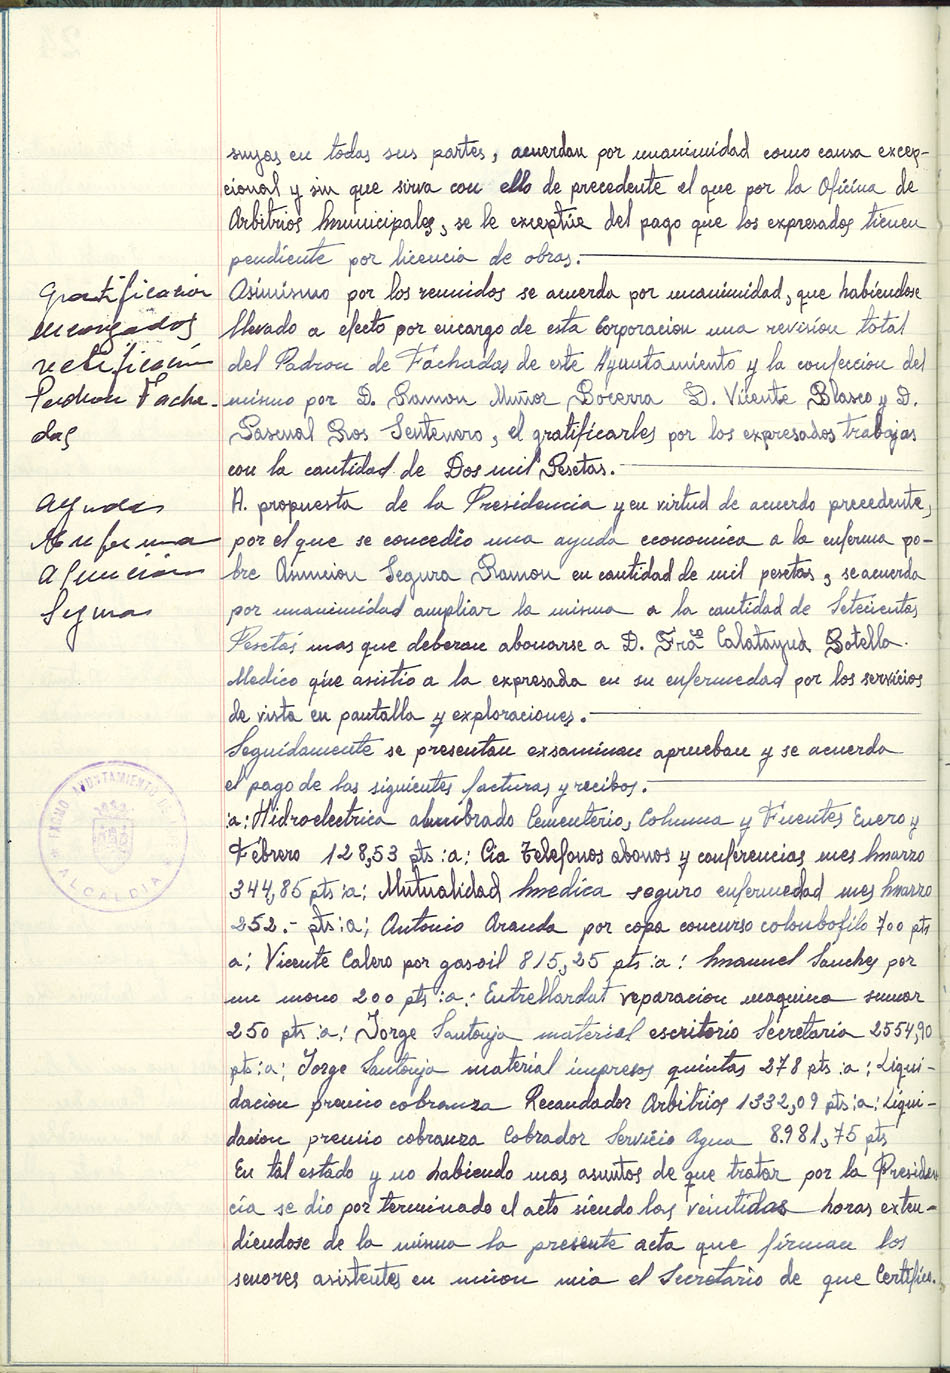 suyas en todas sus partes, acuerdan por unanimidad como causa excep-
cional y sin que sirva con ello de precedente el que por la Oficina de
Arbitrios Municipales, se le exceptúe del pago que los expresados tienen
pendiente por licencia de obras.
Gratificacion
encargados
rectificación
Padron Facha-
das
Asimismo por los reunidos se acuerda por unanimidad, que habiendose
llevado a efecto por encargo de esta Corporacion una revisión total
del Padron de Fachadas de este Ayuntamiento y la confeccion del
mismo por D. Ramon Muñoz Bocerra D. Vicente Blasco y D.
Pascual Ros Sentenero, el gratificarles por los expresados trabajos
con la cantidad de Dos mil Pesetas.
Ayuda
Enferma
Asuncion
Segura
A. propuesta de la Presidencia y en virtud de acuerdo precedente,
por el que se concedio una ayuda economica a la enferma po-
bre Asuncion Segura Ramon en cantidad de mil pesetas, se acuerda
por unanimidad ampliar la misma a la cantidad de Setecientas
Pesetas mas que deberan abonarse a D. Frcº Calatayud Botella.
Medico que asistio a la expresada en su enfermedad por los servicios
de vista en pantalla y exploraciones.
Seguidamente se presentan exsaminan aprueban y se acuerda
el pago de las siguientes facturas y recibos.
EXCMO. AYUNTAMIENTO DE
ALCALDIA
:a: Hidroelectrica alumbrado Cementerio, Columna y Fuentes Enero y
Febrero 128,53 pts :a: Cia Telefonos abonos y conferencias mes Marzo
344,85 pts :a: Mutualidad Medica seguro enfermedad mes Marzo
252.- pts :a; Antonio Aranda por copa concurso colombofilo 700 pts
a; Vicente Calero por gasoil 815,25 pts :a: Manuel Sanchez por
un mono 200 pts :a: Entrellardat reparacion maquina sumar
250 pts :a: Jorge Santonja material escritorio Secretaria 2554,90
pts :a; Jorge Santonja material impresos quintas 278 pts :a; Liqui-
dacion premio cobranza Recaudador Arbitrios 1332,09 pts :a: Liqui-
dacion premio cobranza Cobrador Servicio Agua 8.981,75 pts
En tal estado y no habiendo mas asuntos de que tratar por la Presiden
cia se dio por terminado el acto siendo las veintidas horas exten-
diendose de la misma la presente acta que firman los
senores asistentes en union mia el Secretario de que Certifico.